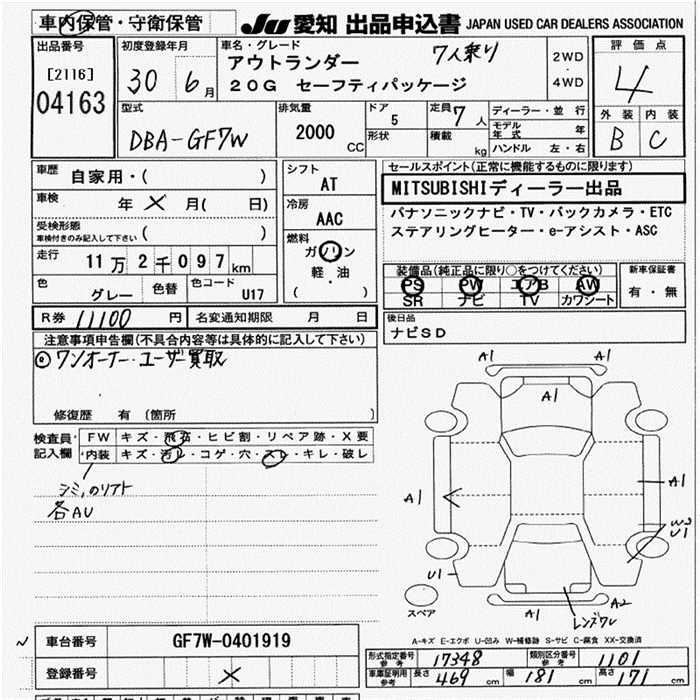 車内保管・守衛保管 JU 愛知 出品申込書 JAPAN USED CAR DEALERS ASSOCIATION
出品番号 [2116] 04163
初度登録年月 30 6月
車名・グレード 7人乗り
アウトランダー
20G セーフティパッケージ
2WD・4WD
評価点 4
外装 内装
B C
型式 DBA-GF7W
排気量 2000 CC
ドア 5
形状
定員 7人
積載 kg
ディーラー・並行
モデル年式 年
ハンドル 左・右
車歴 自家用・( )
車検 年 X 月( 日)
受検形態
車検付きのみ記入して下さい ( )
走行 11万2千097km
色 グレー 色替 色コード U17
シフト AT
冷房 AAC
燃料 ガソリン
軽・油
( )
セールスポイント(正常に機能するものに限ります)
MITSUBISHIディーラー出品
パナソニックナビ・TV・バックカメラ・ETC
ステアリングヒーター・e-アシスト・ASC
装備品(純正品に限り○をつけてください)
PS PW エアB AW
SR ナビ TV カワシート
新車保証書
有・無
R券 11100 円 名変通知期限 月 日
後日品
ナビSD
注意事項申告欄(不具合内容等は具体的に記入して下さい)
⊙ワンオーナー・ユーザー買取
修復歴 有 〔箇所 〕
検査員記入欄
FW キズ・飛石・ヒビ割・リペア跡・X要
内装 キズ・汚レ・コゲ・穴・スレ・キレ・破レ
シミ,のリフト
各AU
A1 A1
A1
A1 A1
W3
U1
U1
A1 A2
レンズワレ
スペア
A-キズ E-エクボ U-凹み W-補修跡 S-サビ C-腐食 XX-交換済
車台番号 GF7W-0401919
登録番号 X
形式指定番号 参考 17348 類別区分番号 参考 1101
車庫証明用 参考 長さ 469 cm 幅 181 cm 高さ 171 cm